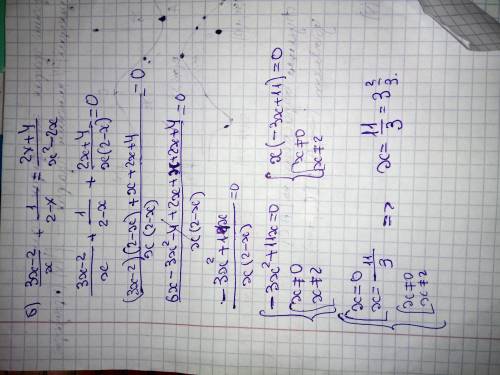 б) (3x-2)/x + 1/(2-x) = (2x+4)/(x²-2x)
(3x-2)/x + 1/(2-x) + (2x+4)/(x(2-x)) = 0
((3x-2)(2-x)+x+2x+4)/(x(2-x)) = 0
(6x-3x²-4+2x+x+2x+4)/(x(2-x)) = 0
(-3x²+11x)/(x(2-x)) = 0
{-3x²+11x=0 {x(-3x+11)=0
{[x≠0 {[x≠0
[x≠2 [x≠2
{[x=0
[x=-11/3 => x=11/3=3 2/3.
{[x≠0
[x≠2